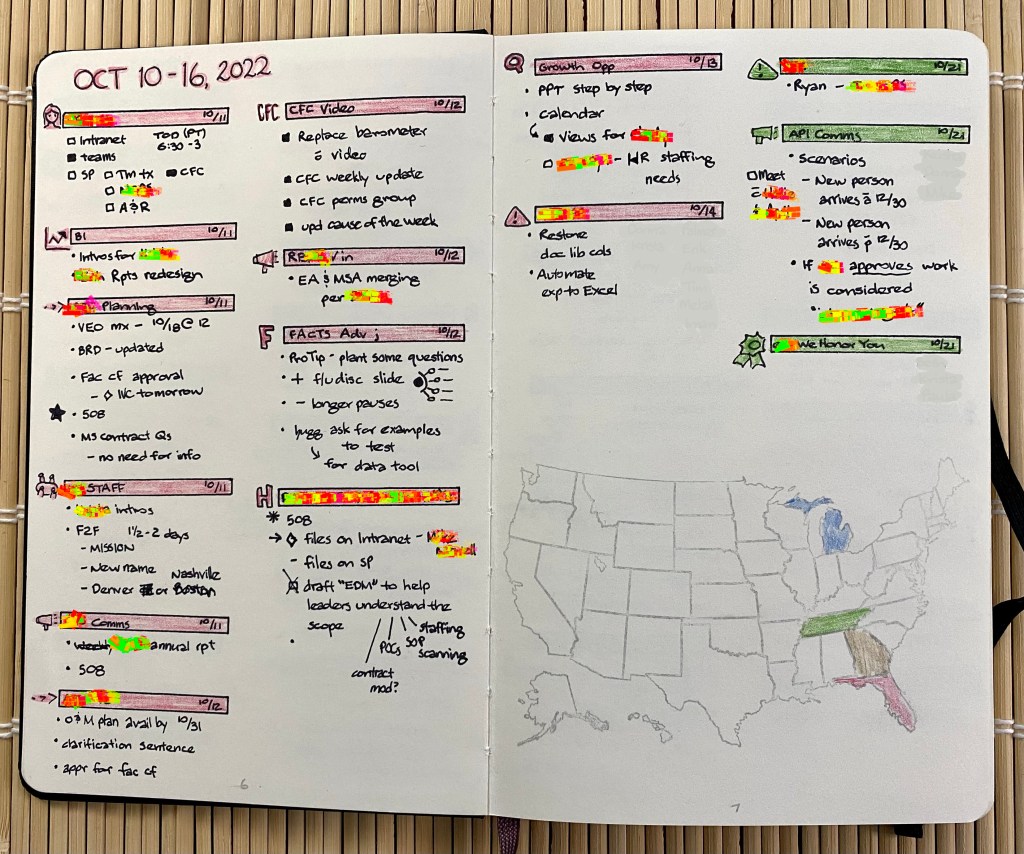 OCT 10-16, 2022
10/11
□ Intranet TOD (PT)
■ teams 6:30-3
□ SP □ Tm tx ■ CFC
□ A&R
BI 10/11
• Intros for
Rpts redesign
Planning 10/11
• VEO mx - 10/18 @ 12
• BRD - updated
• Fac cf approval
- ◇ IVC tomorrow
★ • 508
• MS contract Qs
- no need for info
STAFF 10/11
• intros
• F2F 1½-2 days
- MISSION
- New name Nashville
- Denver or Boston
Comms 10/11
• weekly annual rpt
• 508
10/12
• O&M plan avail by 10/31
• clarification sentence
• appr for fac cf
6
CFC CFC Video 10/12
■ Replace barometer
c̄ video
■ CFC weekly update
■ CFC perms group
■ upd cause of the week
in 10/12
• EA & MSA merging
per
F FACTS Adv 10/12
• ProTip - plant some questions
• + f/u disc slide
• - longer pauses
• hugg ask for examples
to test
for data tool
H
* 508
→ ◇ files on Intranet -
- files on SP
draft "EDM" to help
leaders understand the
scope
staffing
POCs SOP
scanning
contract
mod?
Q Growth Opp 10/13
• PPT step by step
• calendar
■ Views for
□ - HR staffing
needs
10/14
• Restore
doc lib cols
• Automate
exp to Excel
10/21
• Ryan -
API Comms 10/21
• scenarios
□ Meet - New person
c̄ arrives ā 12/30
- New person
arrives p̄ 12/30
• If approves work
is considered
We Honor You 10/21
7